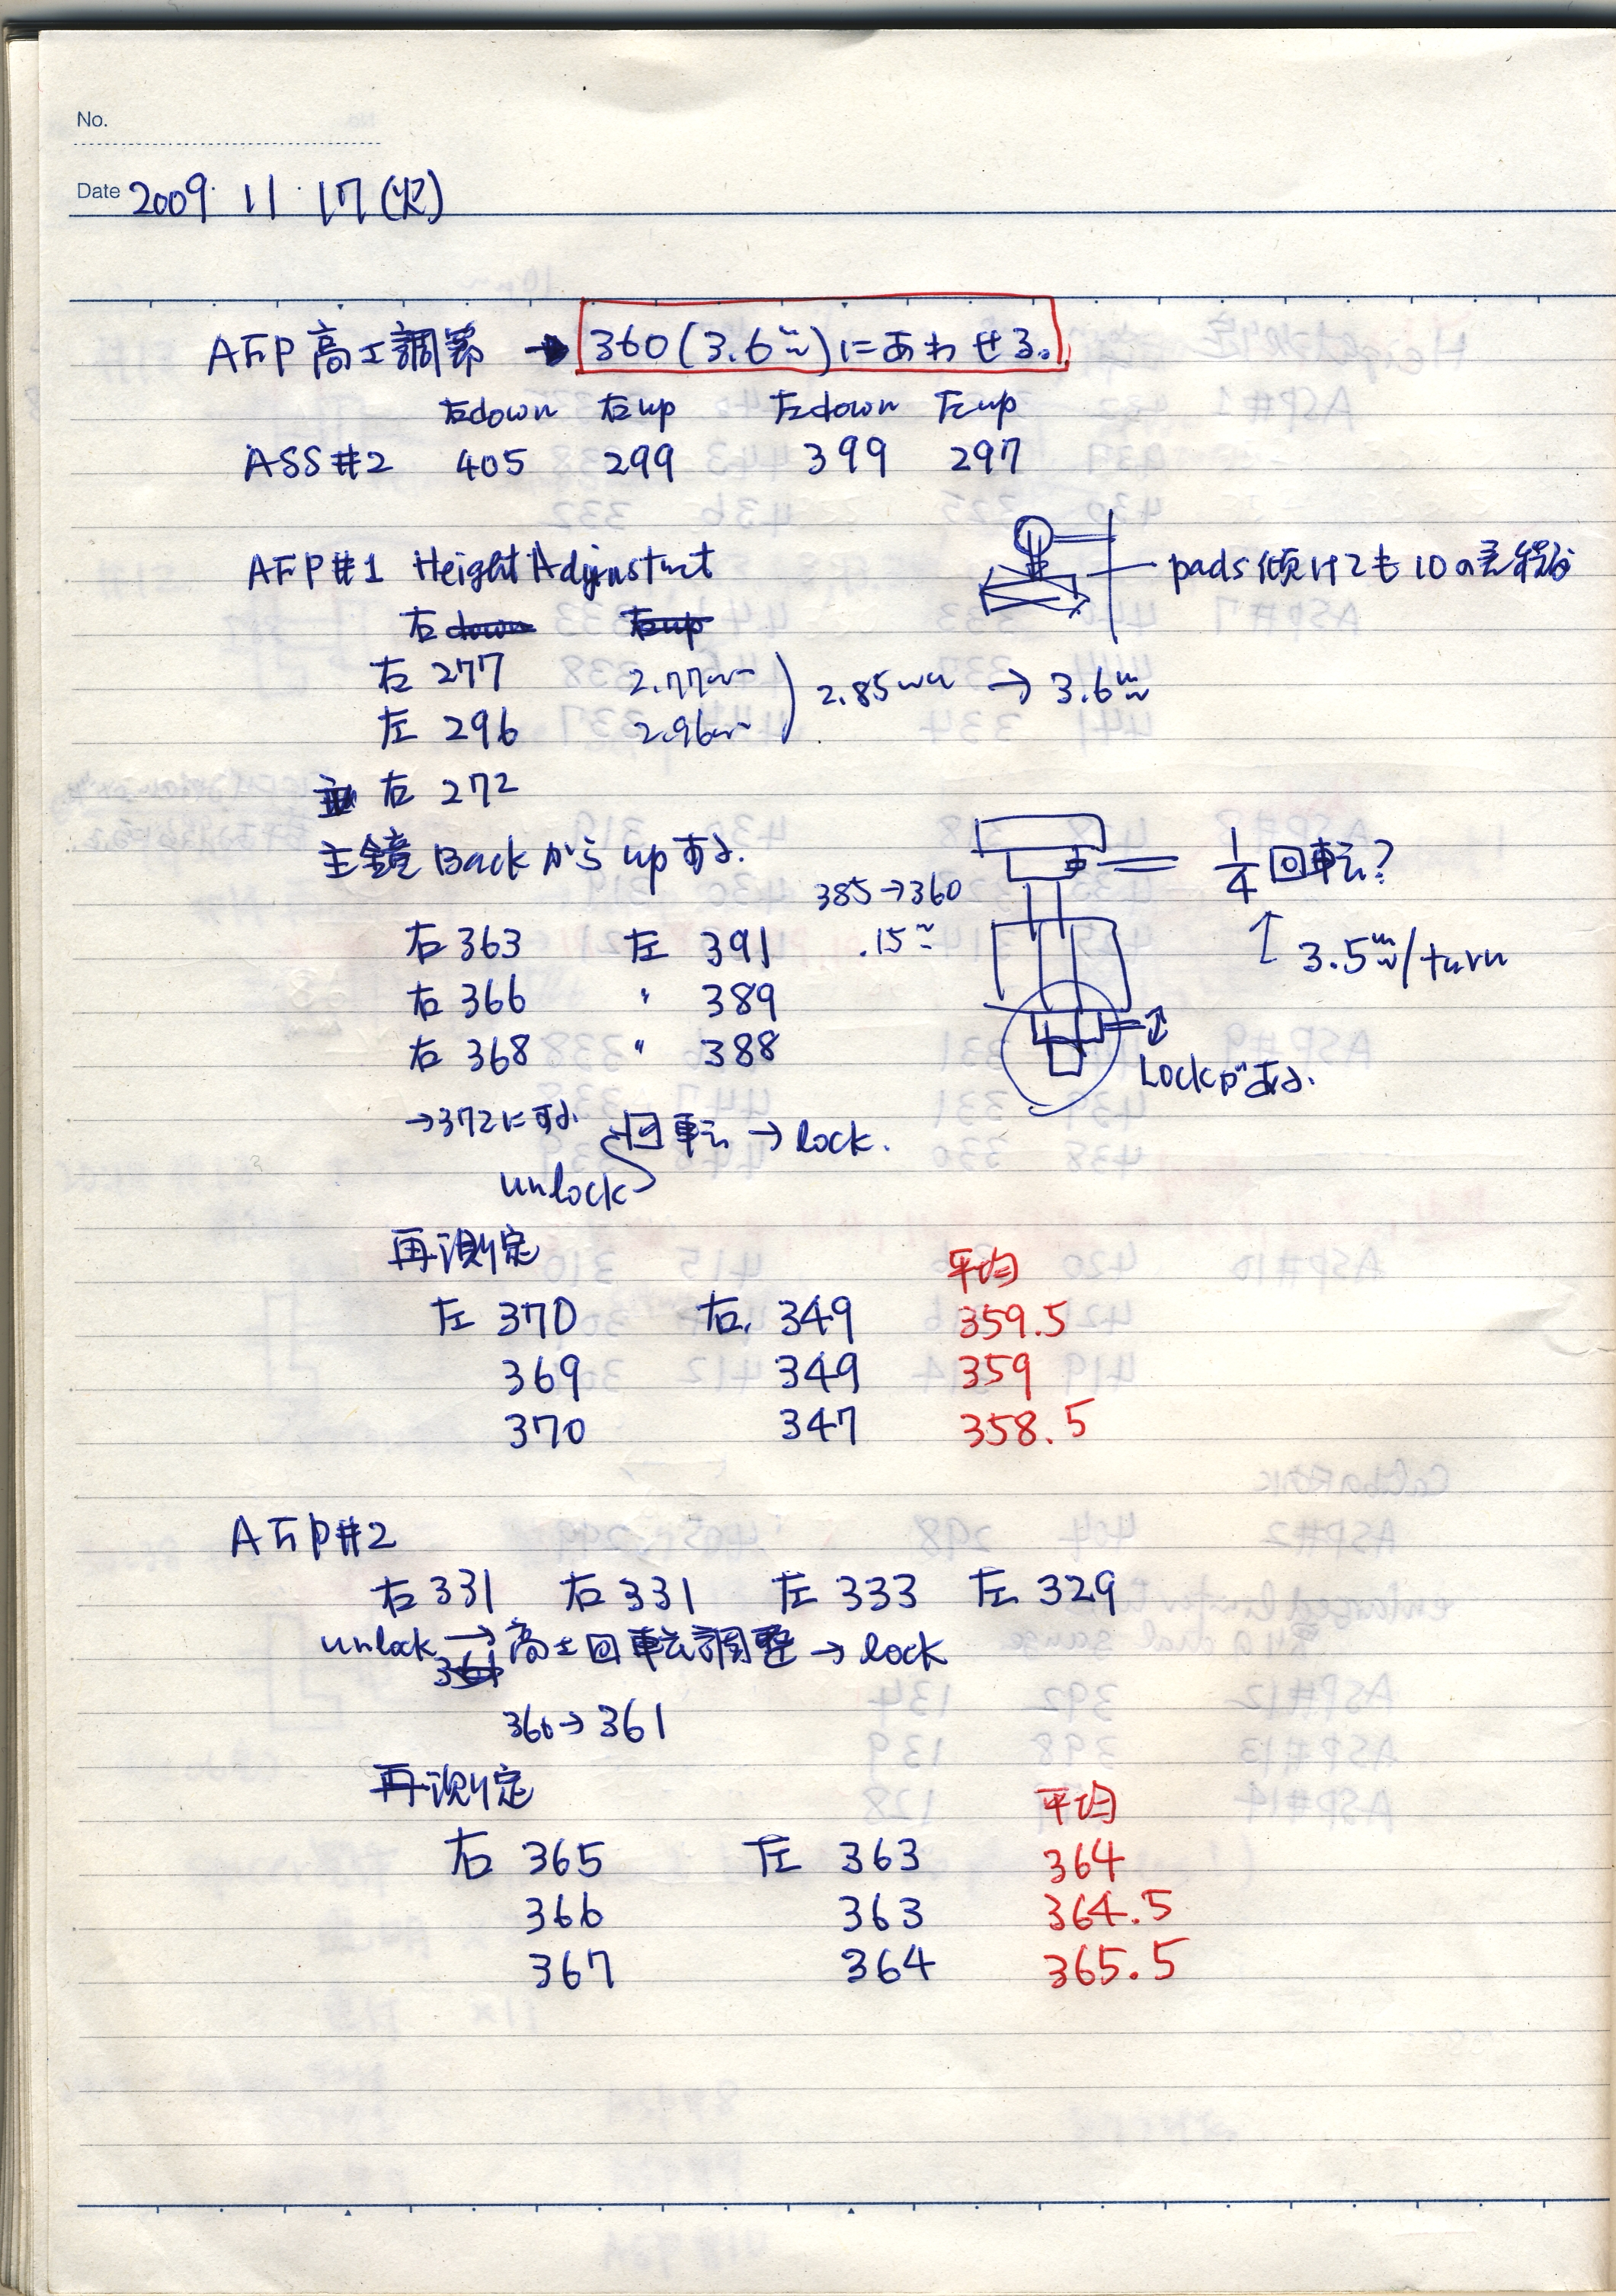 No.
Date 2009. 11. 17 (火)
AFP 高さ調節 → 360 (3.6mm) にあわせる。
右down 右up 左down 左up
ASS#2 405 299 399 297
AFP#1 Height Adjustment
pads傾けても10の差
右
右 277 2.77mm
左 296 2.96mm
2.85mm → 3.6mm
右 272
主鏡 Back から up する.
385→360
.15mm
1/4 回転?
↑ 3.5mm/turn
右 363 左 391
右 366 〃 389
右 368 〃 388
Lockがある.
→372にする
回転 → lock.
unlock
再測定 平均
左 370 右 349 359.5
369 349 359
370 347 358.5
AFP#2
右 331 右 331 左 333 左 329
unlock → 高さ回転調整 → lock
366→361
再測定 平均
右 365 左 363 364
366 363 364.5
367 364 365.5